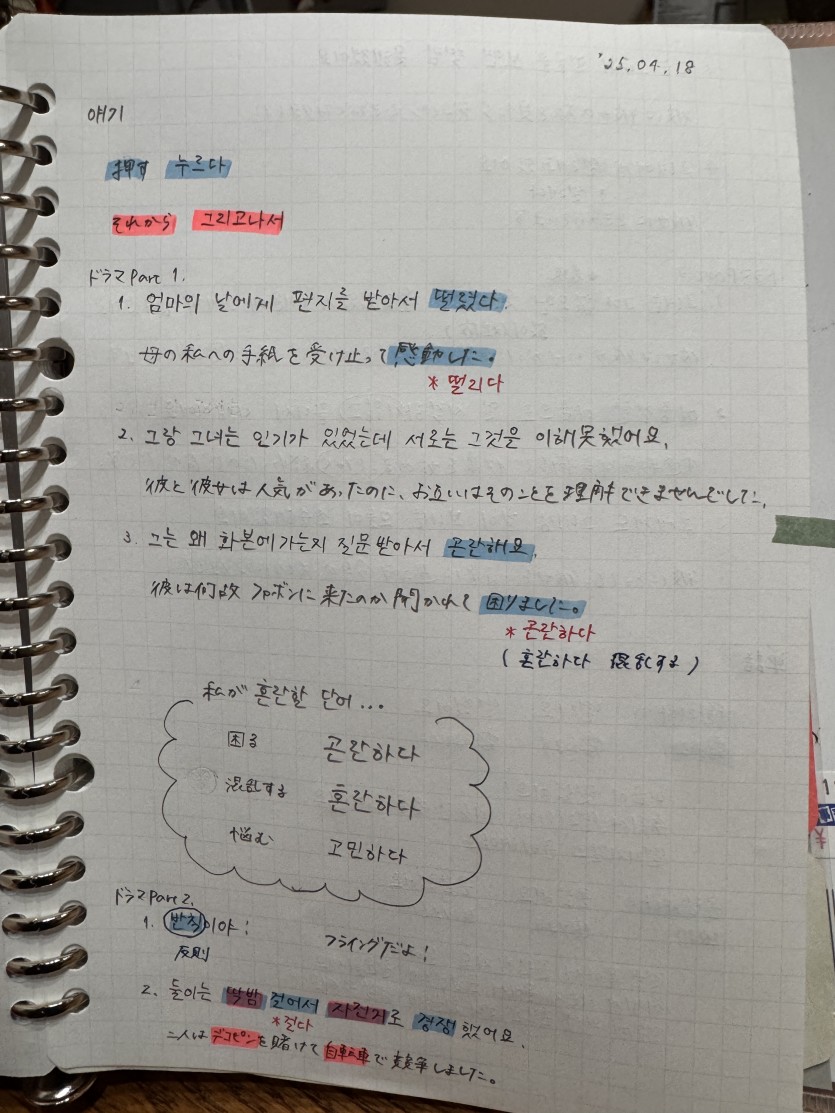 '25.04.18
얘기
押す 누르다
それから 그리고나서
ドラマPart 1.
1. 엄마의 날에게 편지를 받아서 떨렸다.
母の私への手紙を受け止って感動した。
* 떨리다
2. 그랑 그녀는 인기가 있었는데 서로는 그것을 이해못했어요.
彼と彼女は人気があったのに、お互いはそのことを理解できませんでした。
3. 그는 왜 화본에 가는지 질문 받아서 곤란해요.
彼は何故ファボンに来たのか聞かれて困りました。
* 곤란하다
(혼란하다 混乱する)
私が 혼란할 단어...
困る 곤란하다
混乱する 혼란하다
悩む 고민하다
ドラマPart2.
1. 반칙이야! フライングだよ!
反則
2. 둘이는 딱밤 걸어서 자전거로 경쟁했어요.
*걸다
二人はデコピンを賭けて自転車で競争しました。